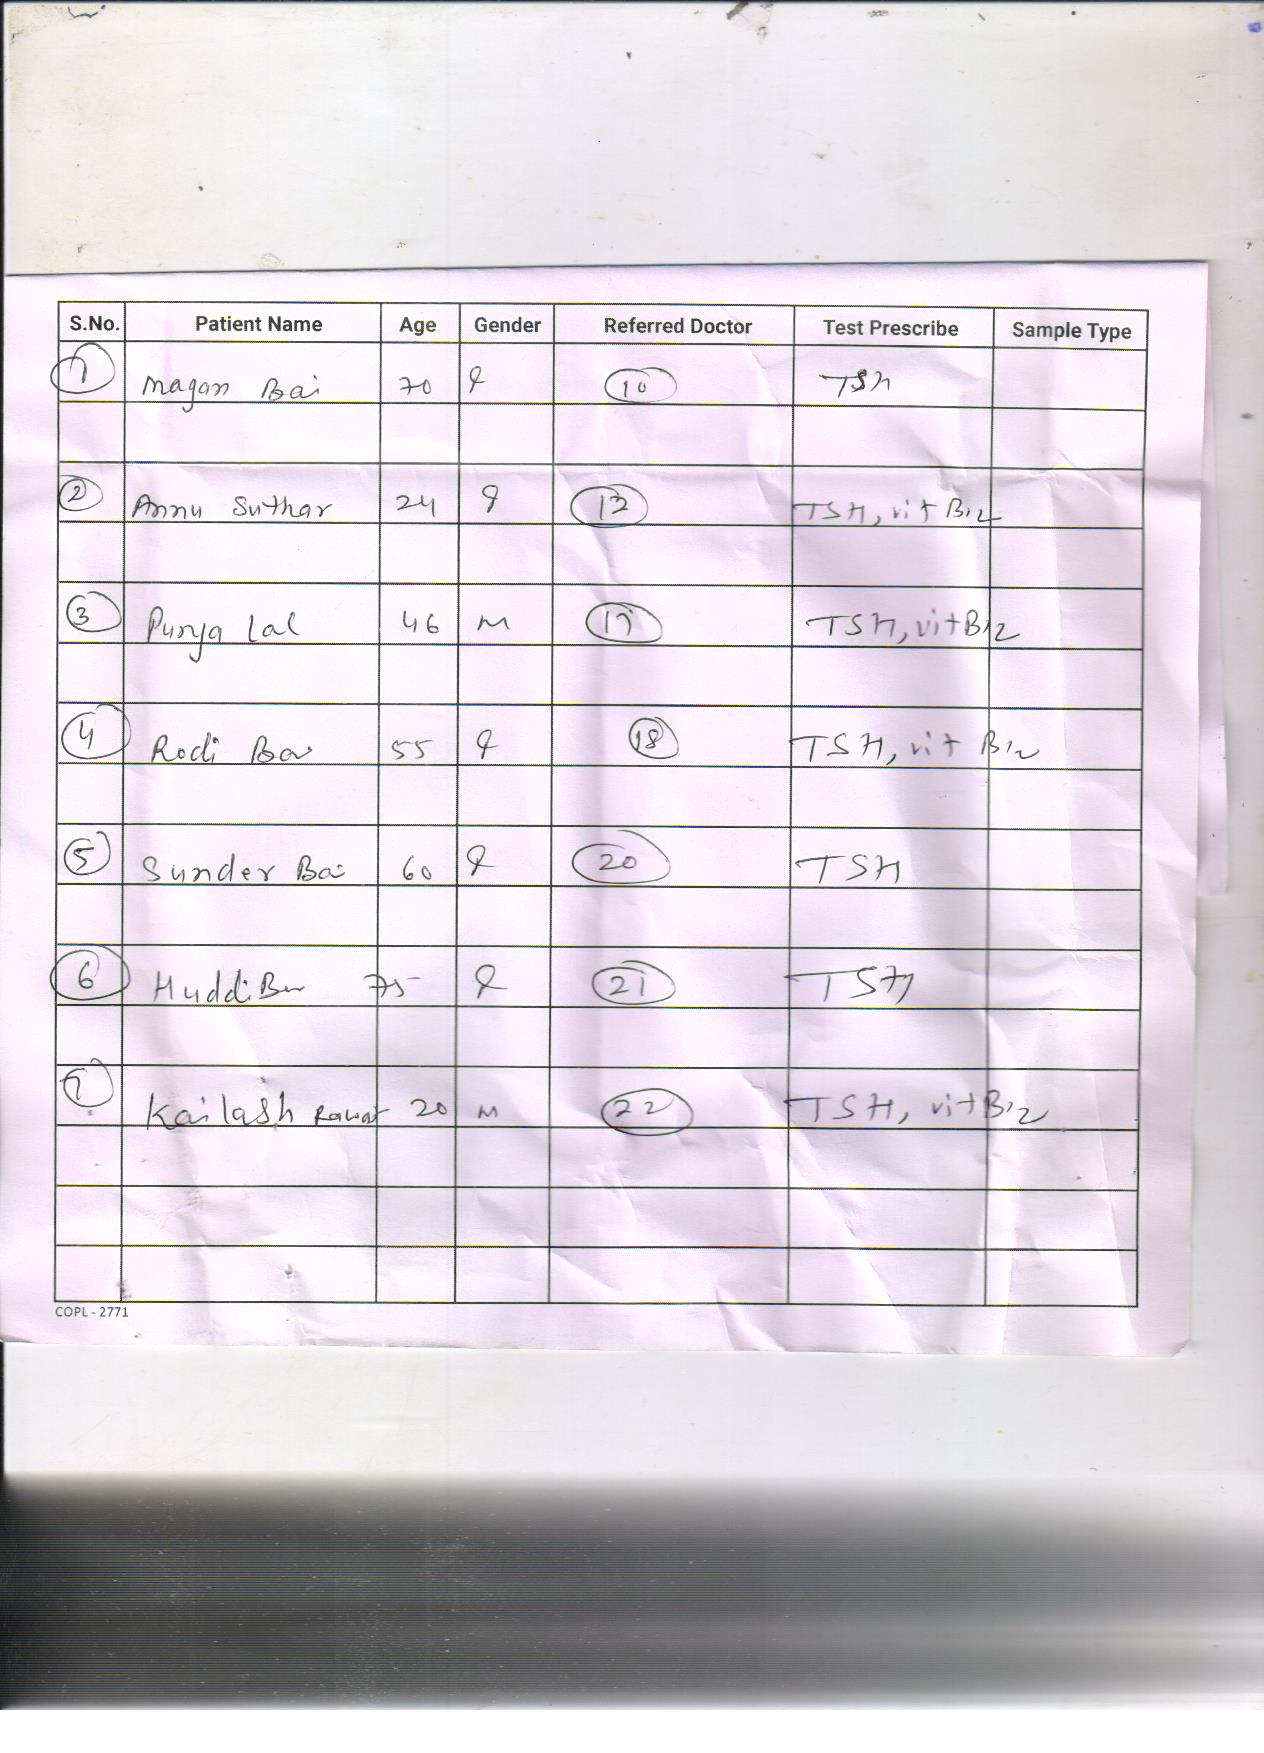 S.No. Patient Name Age Gender Referred Doctor Test Prescribe Sample Type
1 Magan Bai 70 F 10 TSH
2 Annu Suthar 24 F 13 TSH, vit B12
3 Punja Lal 46 M 17 TSH, vit B12
4 Rodi Bai 55 F 18 TSH, vit B12
5 Sunder Bai 60 F 20 TSH
6 Huddi Bai 75 F 21 TSH
7 Kailash Rawat 20 M 22 TSH, vit B12
COPL - 2771